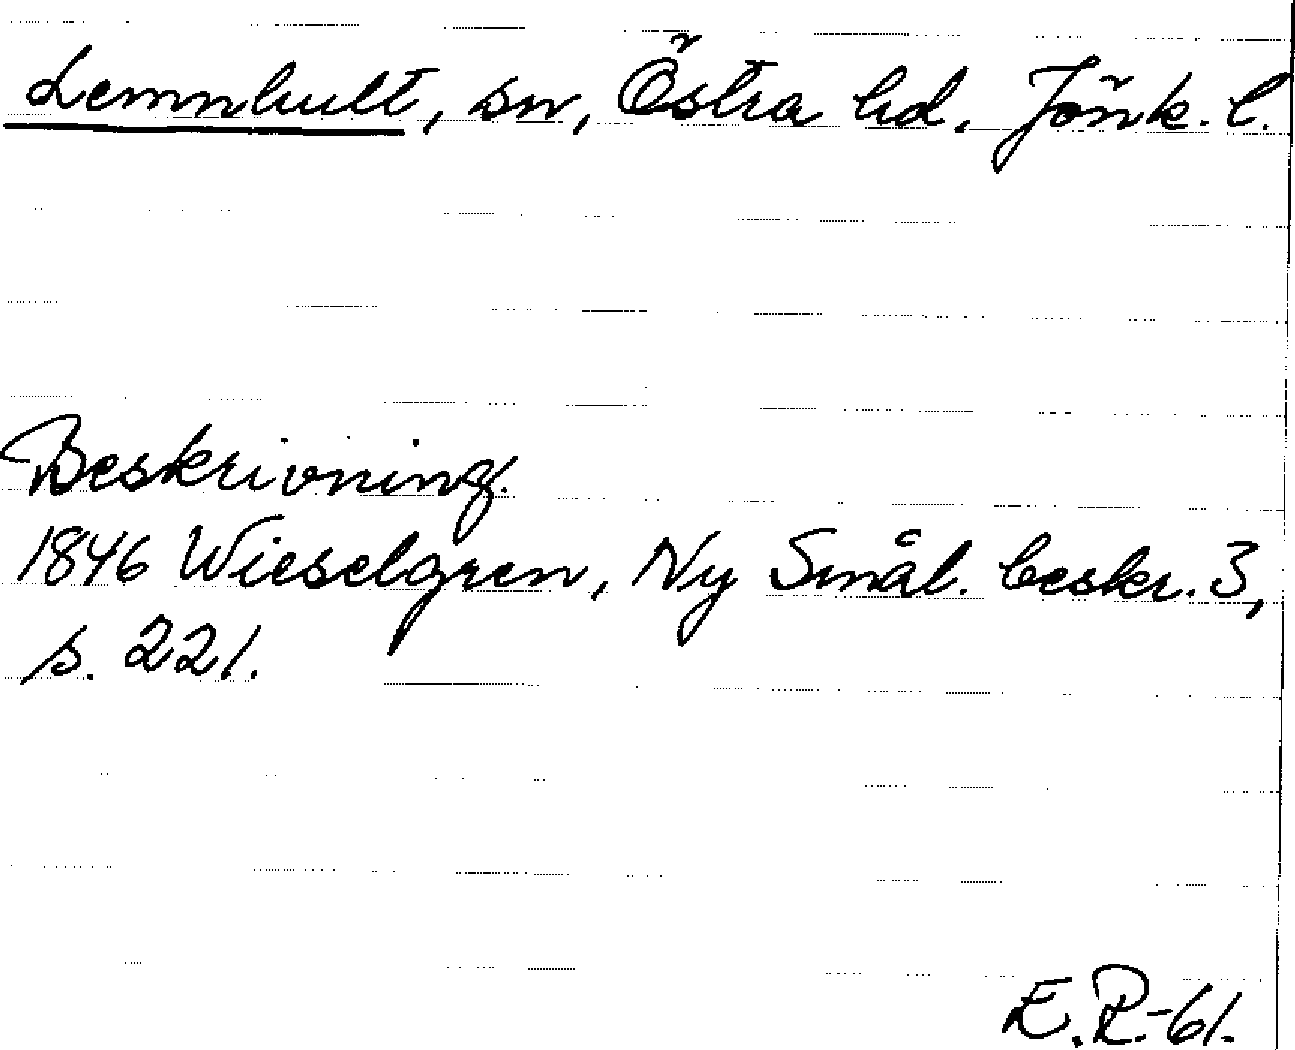 Lemnhult, sn, Östra hd. Jönk. l.
Beskrivning.
1846 Wieselgren, Ny Smål. beskr. 3,
s. 221.
E. R.-61.